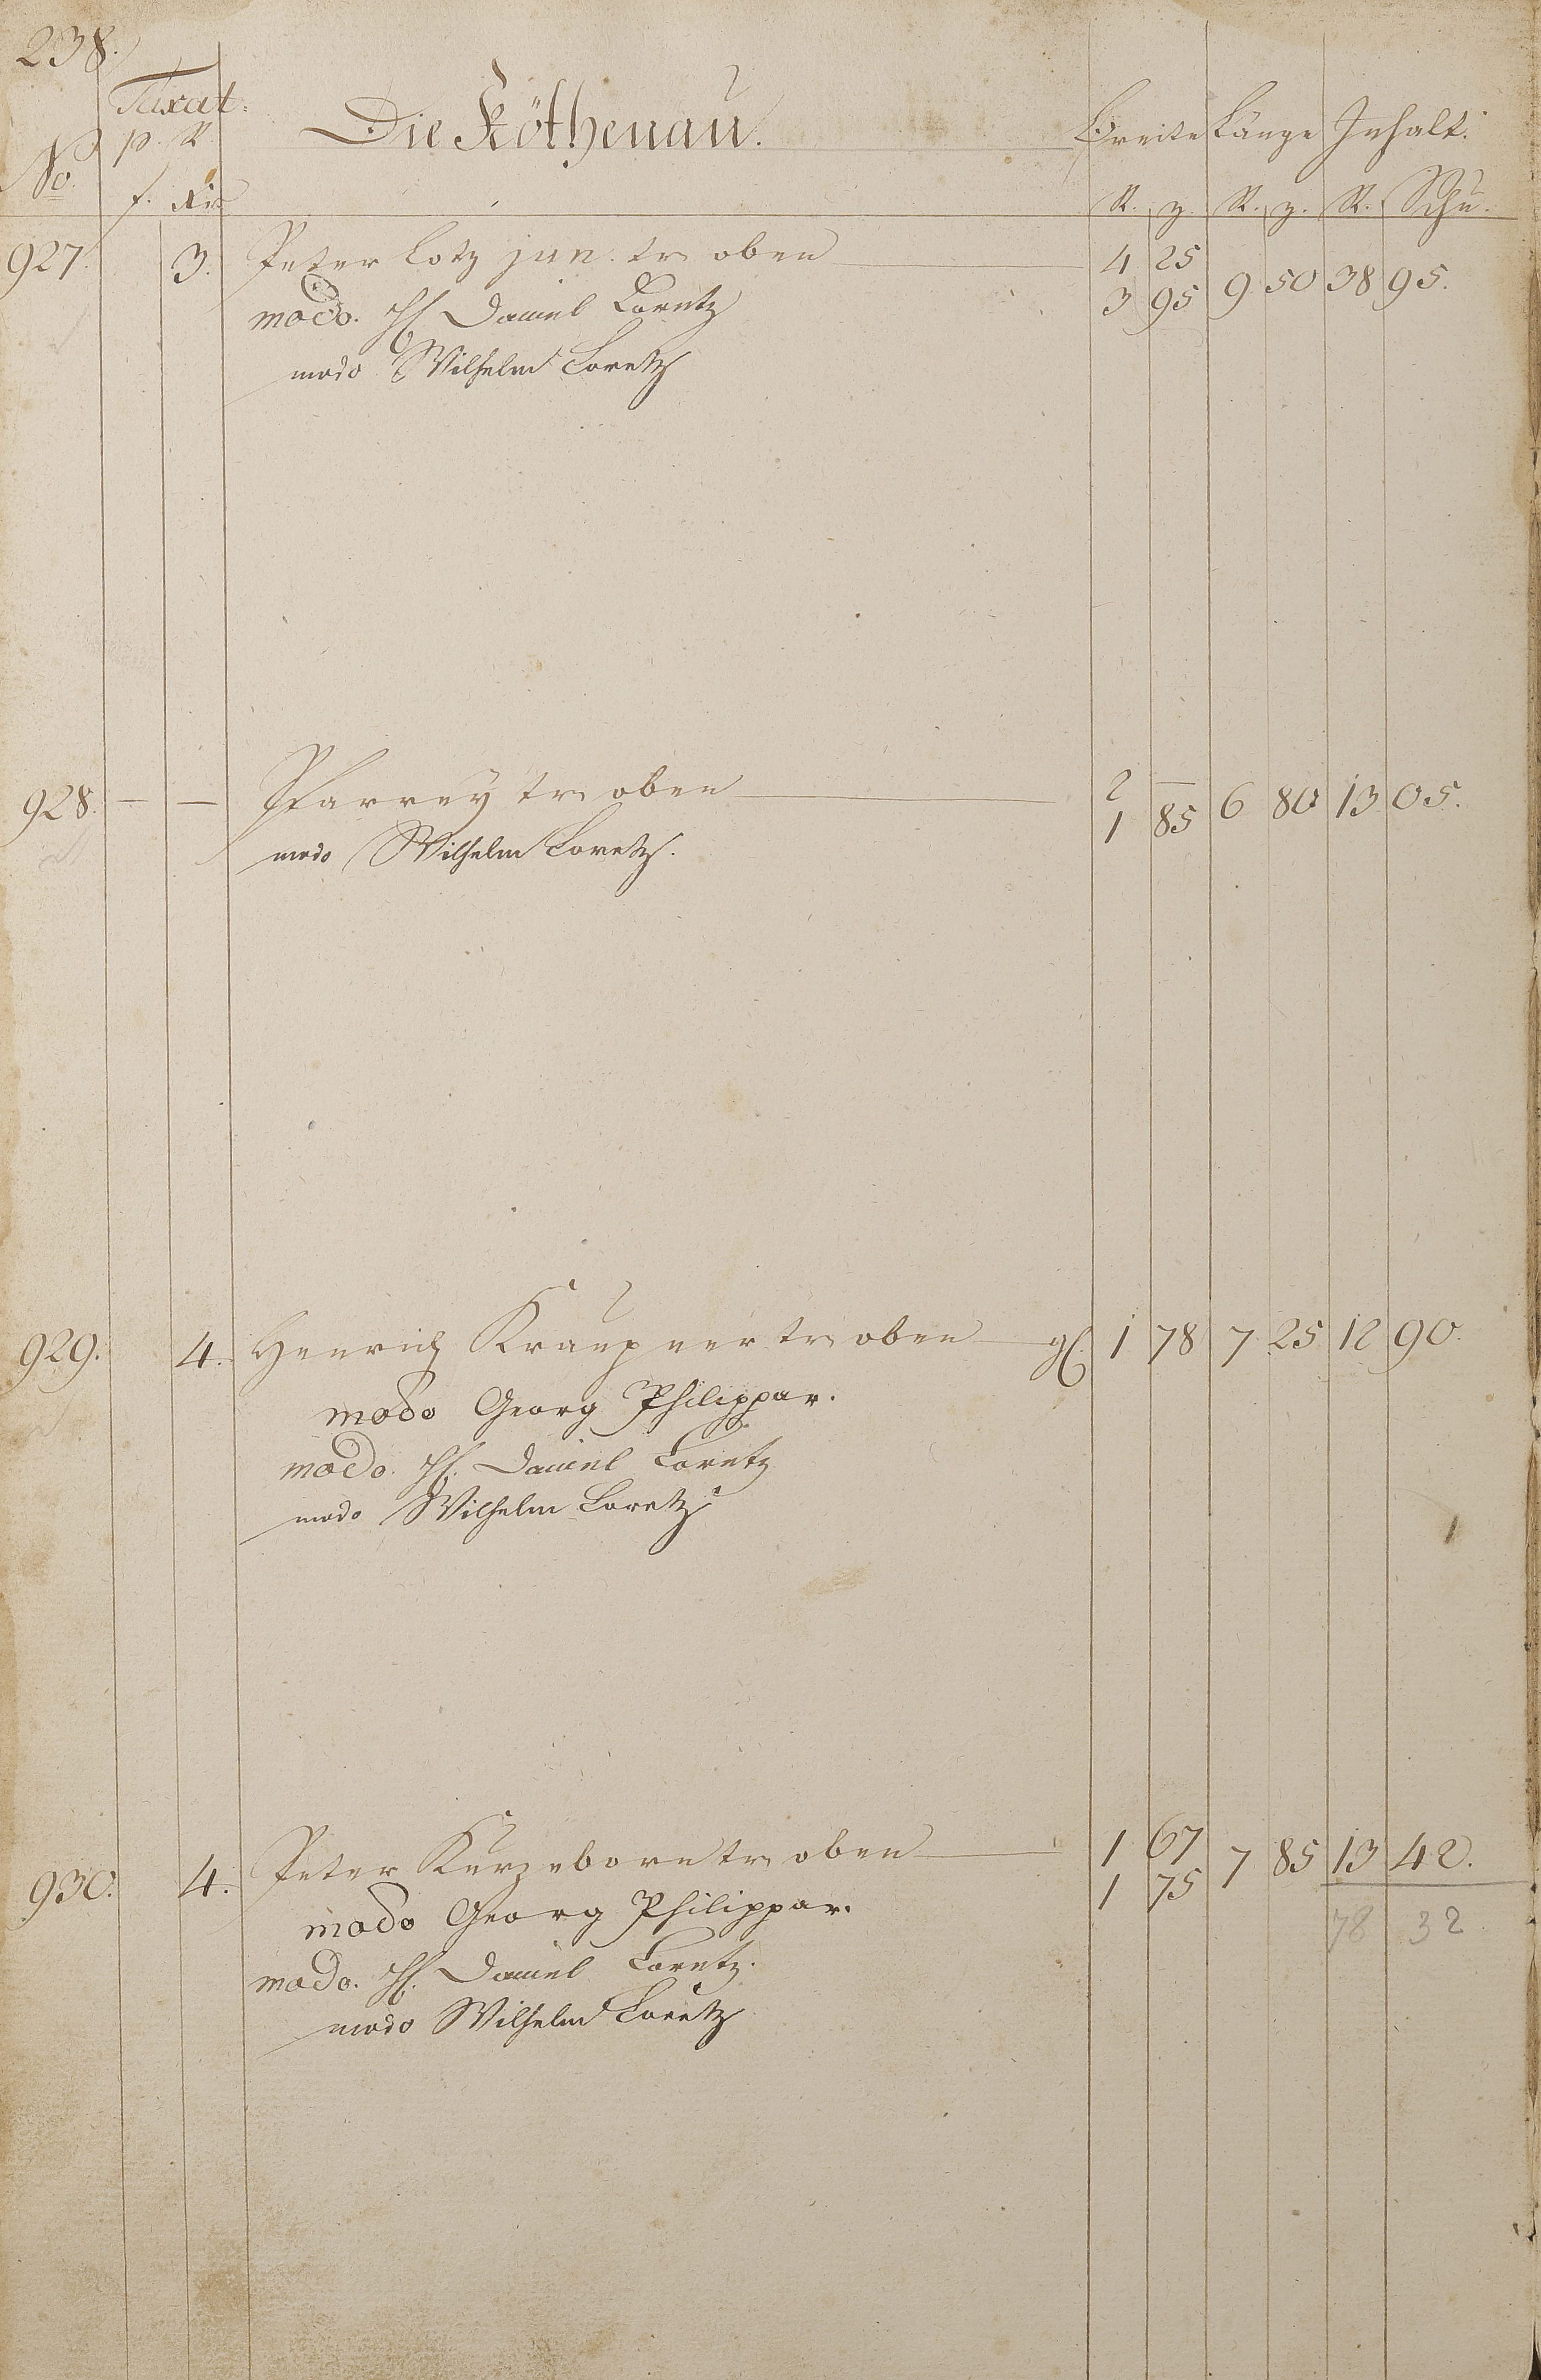 238.
Taxat. Die Köthenau. Breite Länge Inhalt.
No. p. R.
f. R. z. R. z. R. Schu.
927. 3. Peter Lotz jun. tr. oben 4 25
3 95 9 50 38 95.
modo. H. Daniel Loretz
modo Wilhelm Loretz
928. — — Pfarrey tr. oben 2 —
1 85 6 80 13 05.
modo Wilhelm Loretz.
929. 4. Henrich Kraupner tr. oben gl. 1 78 7 25 12 90.
modo Georg Philippar.
modo. H. Daniel Loretz
modo Wilhelm Loretz
930. 4. Peter Kurzeborn tr. oben 1 67
1 75 7 85 13 42.
modo Georg Philippar.
78 32
modo. H. Daniel Loretz.
modo Wilhelm Loretz